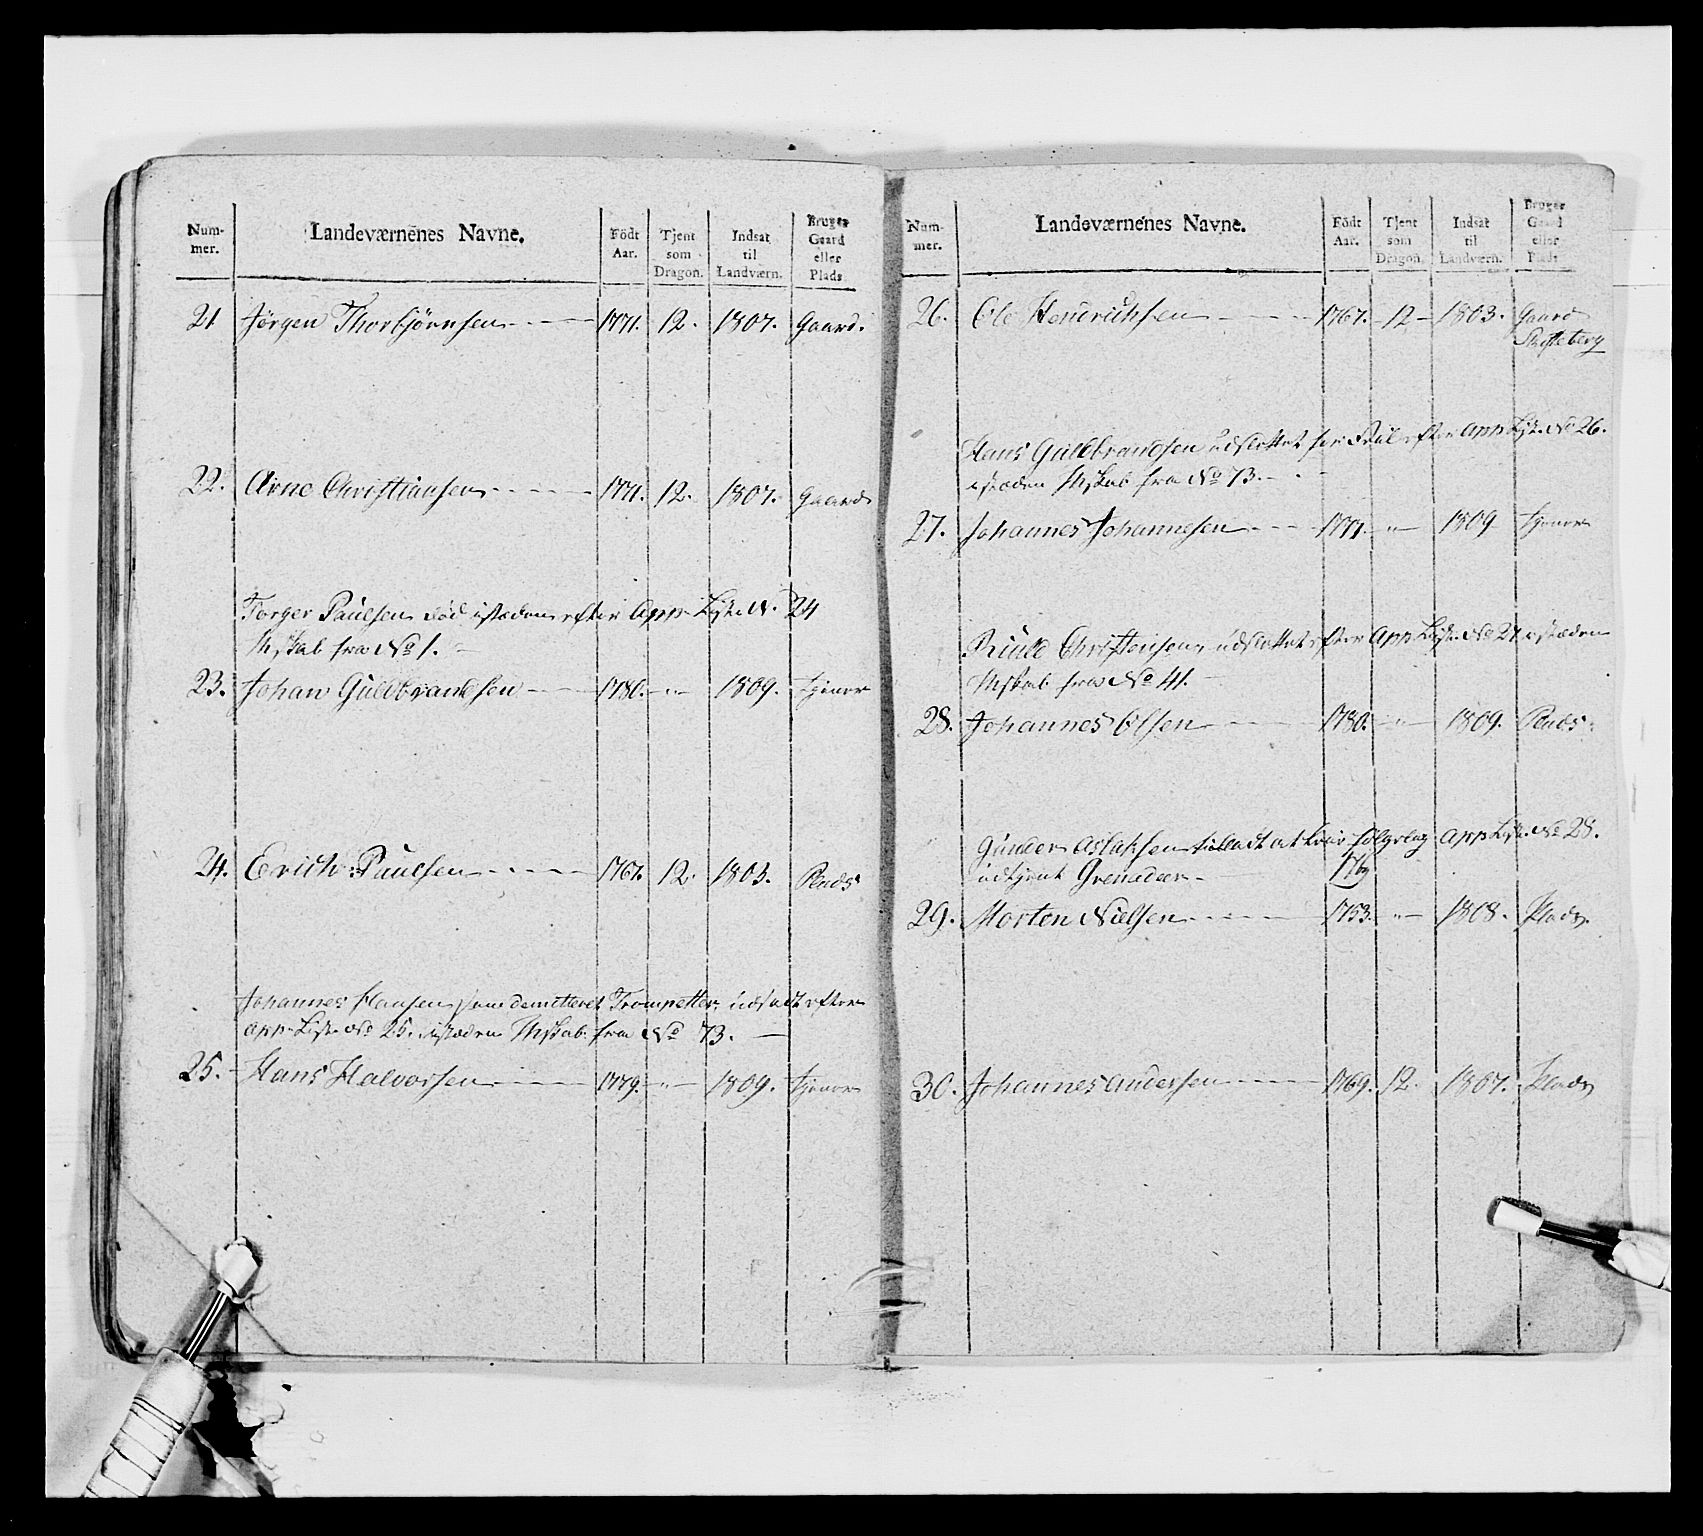 Num-
mer.
Landeværnenes Navne.
Födt
Aar.
Tjent
som
Dragon.
Indsat
til
Landværn.
Bruger
Gaard
eller
Plads
21 Jørgen Thorbjørnsen 1771. 12. 1807. Gaard.
22. Arne Christiansen 1771. 12. 1807. Gaard
Torger Paulsen død istæden efter App. List. N. 24
Mskab fra No 1.
23. Johan Guldbrandsen 1780. " 1809. tjener
24. Erich Paulsen 1767. 12. 1803. Plads
Johannes Hansen som demitteret Trompetter, udsadt efter
app. List. No 25. istæden Mskab fra No 73.
25. Hans Halvorsen 1779. " 1809. tjener
Num-
mer.
Landeværnenes Navne.
Födt
Aar.
Tjent
som
Dragon.
Indsat
til
Landværn.
Bruger
Gaard
eller
Plads
26. Ole Henrichsen 1767. 12 1803. Gaard
Hans Guldbrandsen udslettet efter App List. No 26.
istæden Mskab fra No 73.
27. Johannes Johannesen 1771. " 1809 tjener
Christensen, udslettet efter App List. No 27. istæden
Mskab fra No 41.
28. Johannes Olsen 1780. " 1809. Plads.
Gunder Aslaksen app List. No 28.
udtjent Grenadeer.
29. Morten Nielsen 1753. " 1808. Plads.
30. Johannes Andersen 1769. 12. 1807. Plads